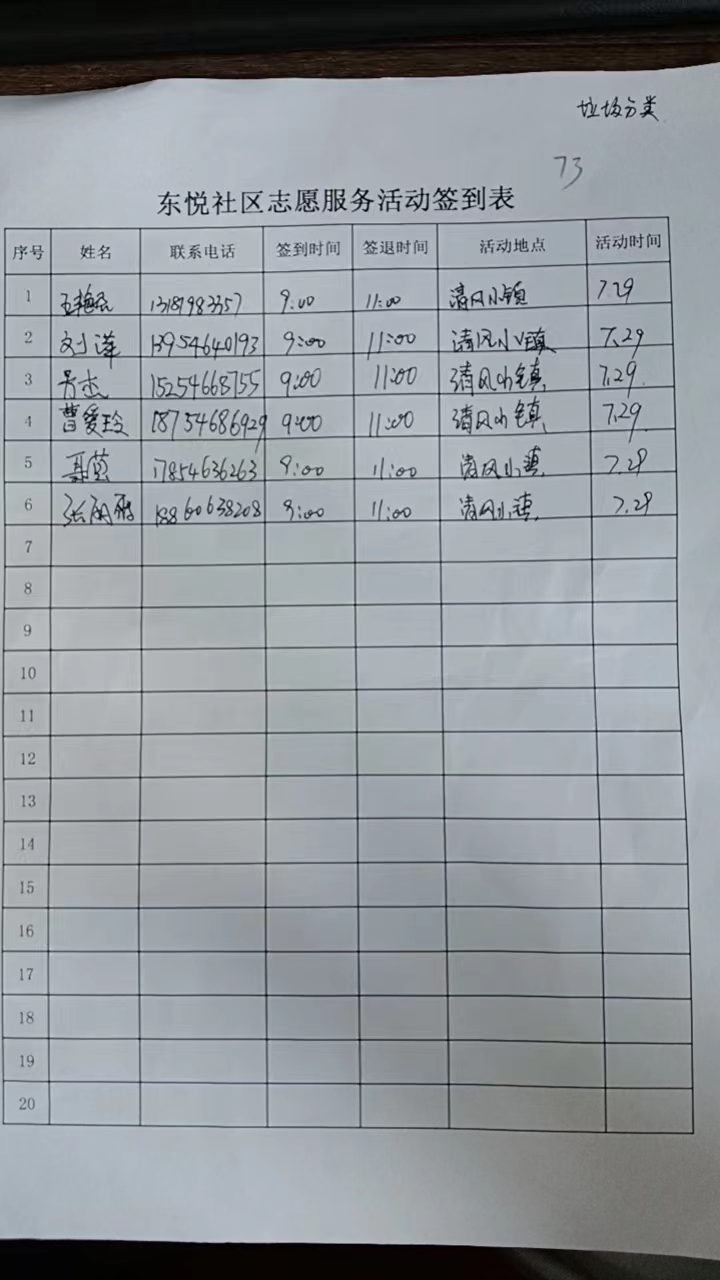 垃圾分类
73
东悦社区志愿服务活动签到表
序号 姓名 联系电话 签到时间 签退时间 活动地点 活动时间
1 13181983357 9:00 11:00 清风小镇 7.29
2 刘洋 13954640193 9:00 11:00 清风小镇 7.29
3 15254668755 9:00 11:00 清风小镇 7.29
4 曹爱玲 18754686929 9:00 11:00 清风小镇 7.29
5 17854636263 9:00 11:00 清风小镇 7.29
6 张丽 18860638208 9:00 11:00 清风小镇 7.29
7
8
9
10
11
12
13
14
15
16
17
18
19
20